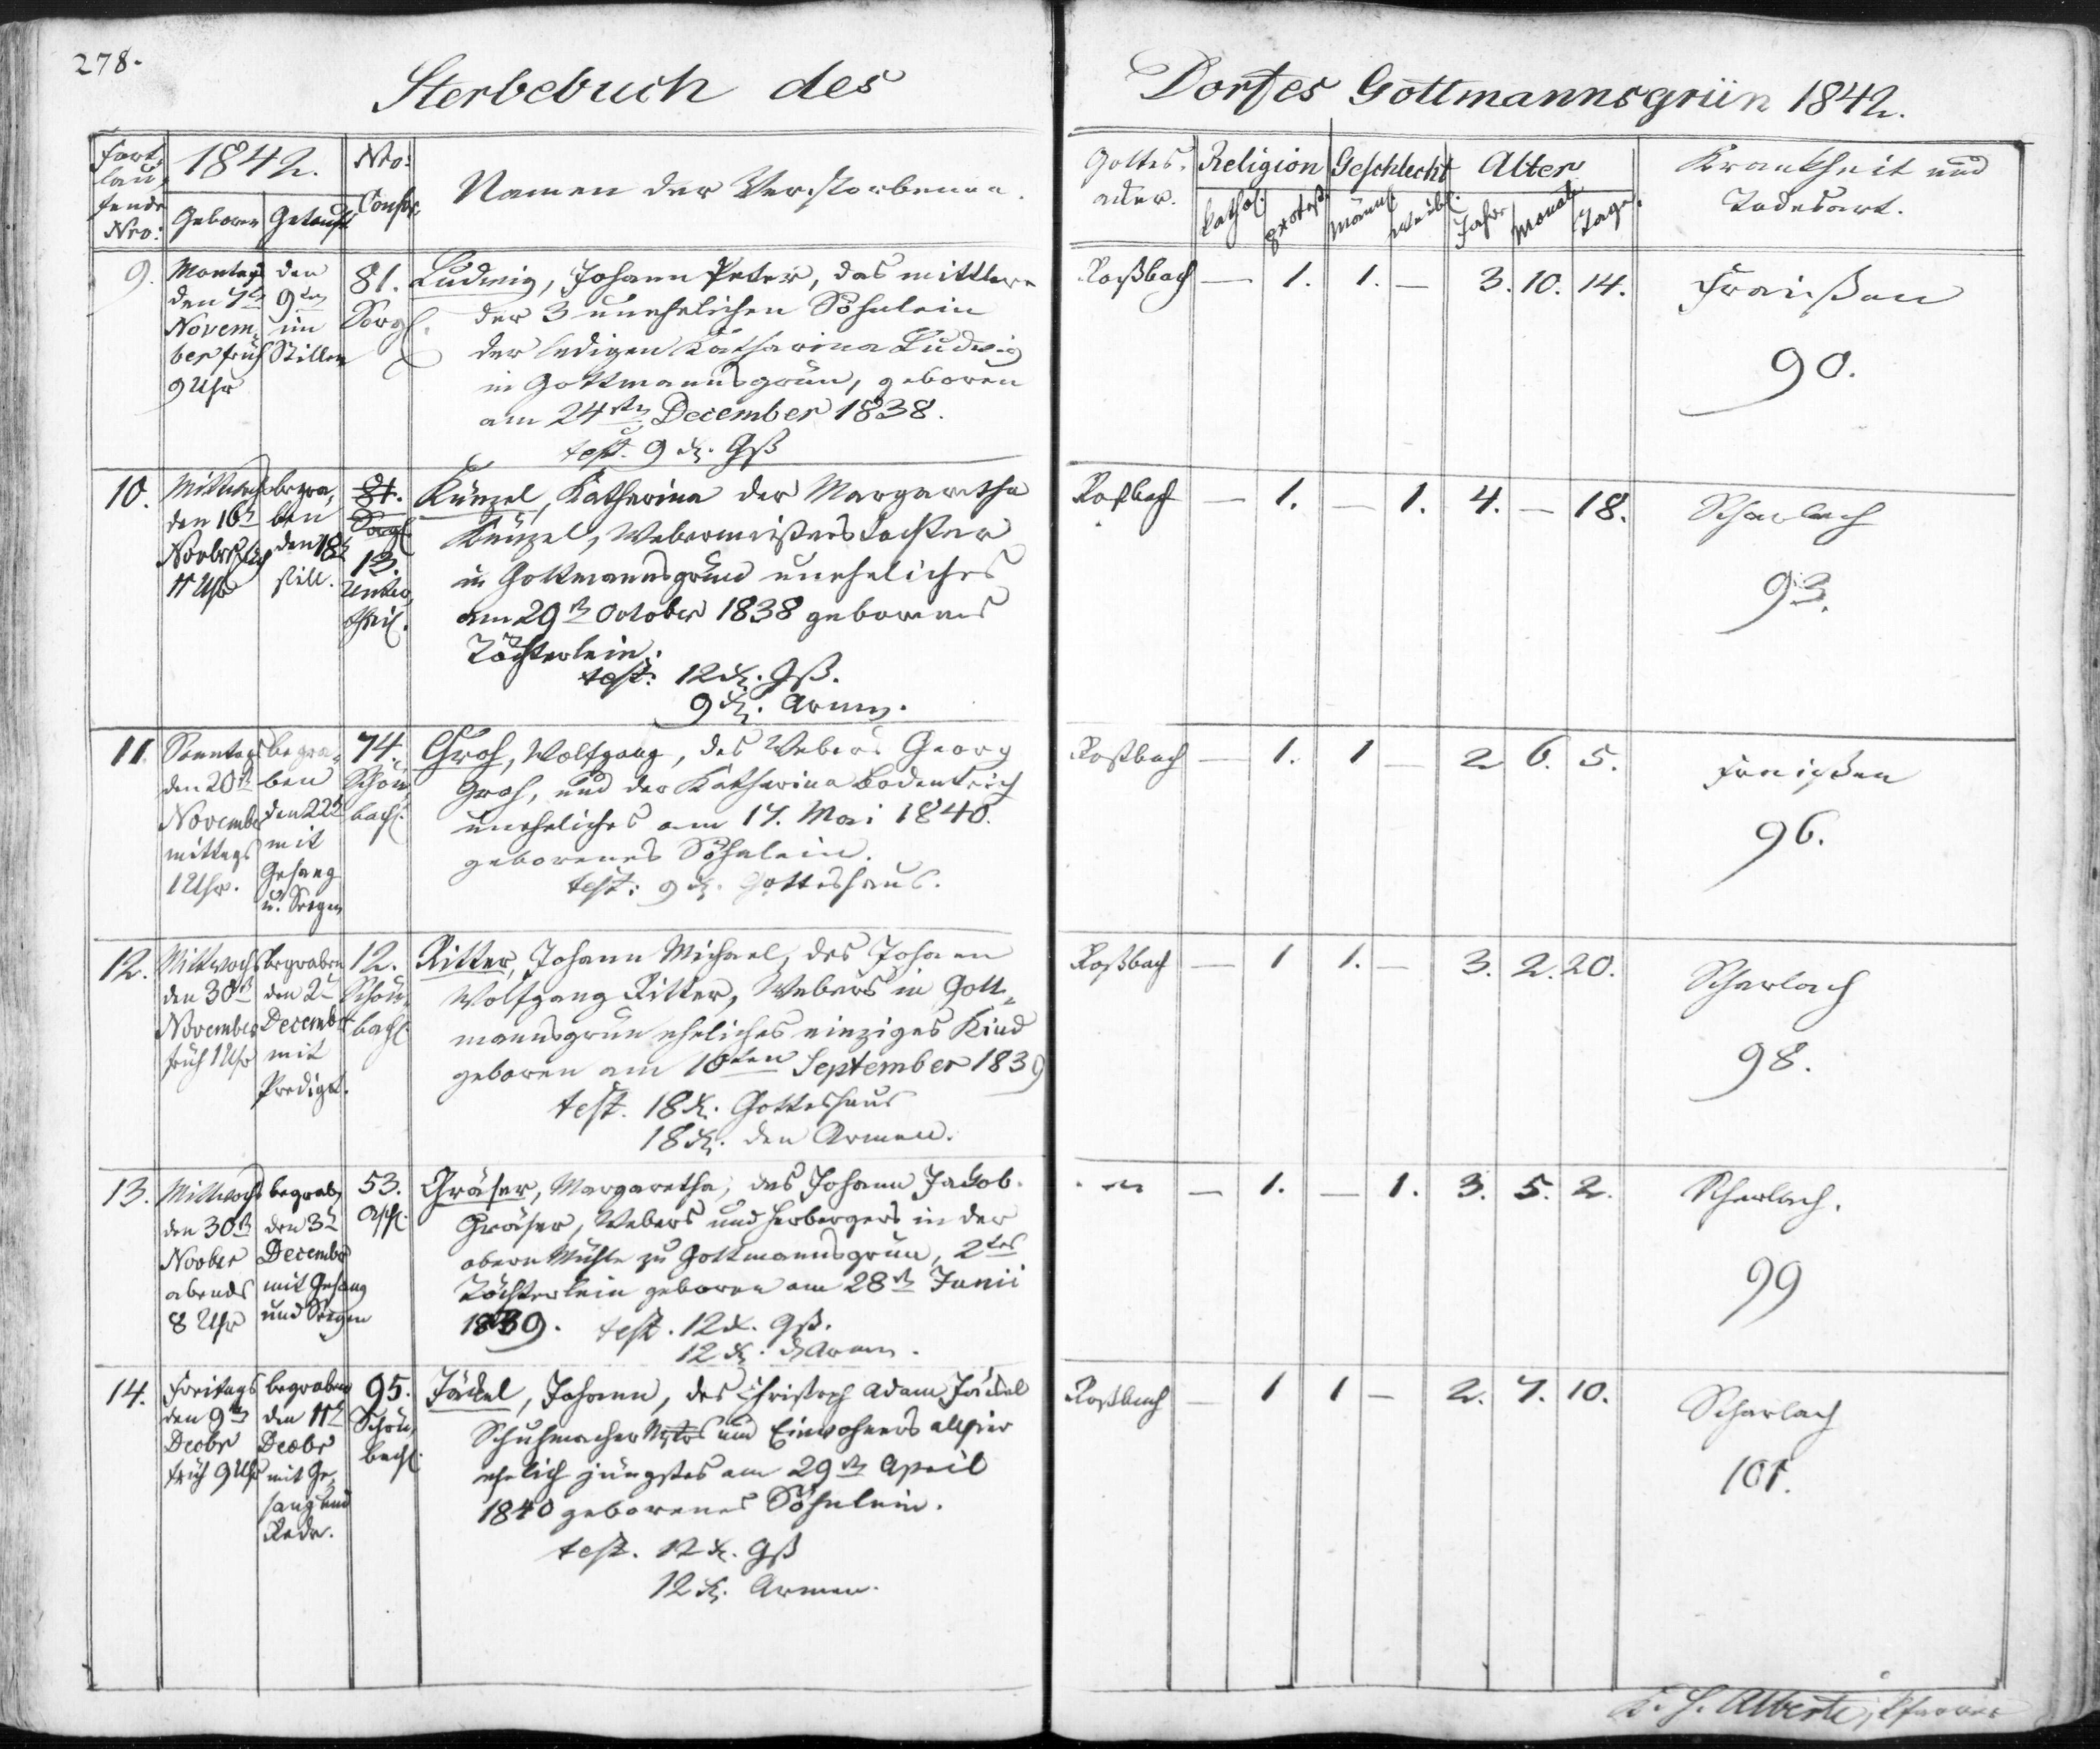 278.
Sterbebuch des Dorfes Gottmannsgrün 1842.
Fort,
lau,
fende
Nro:
1842.
Geboren
Getauft
Nro:
Conscr.
Namen der Verstorbenen.
Gottes,
acker.
Religion
Kathol.
protest.
Geschlecht
Männl.
Weibl.
Alter
Jahre
Monate
Tage.
Krankheit und
Todesart.
9.
Montag
den 7t
Novem,
ber früh
9 Uhr
den
9ten
im
Stillen
81.
Sorg
Ludwig, Johann Peter, das mittlere
der 3 unehelichen Söhnlein
der ledigen Katharina Ludwig
in Gottmannsgrün, geboren
am 24ten December 1838.
test. 9 x. Gß
Roßbach — 1. 1. — 3. 10. 14.
Fraißen
90.
10.
Mittwoch
den 16t
Novbr früh
11 Uhr
begra,
ben
den 18t
still.
81.
Sorg
13.
Unter,
theil.
Künzel, Katharina der Margaretha
Künzel, Webermeisters Tochter
in Gottmannsgrün uneheliches
am 29t October 1838 geborenes
Töchterlein.
test: 12 x. Gß.
9 x. Armen.
Roßbach — 1. — 1. 4. — 18.
Scharlach
93.
11.
Sonntag
den 20t
November
mittags
1 Uhr.
begra,
ben
den 22t
mit
Gesang
u. Seegen
74.
Schön,
bach.
Groh, Wolfgang, des Webers Georg
Groh, und der Katharina Bodenteich
uneheliches am 17. Mai 1840.
geborenes Söhnlein.
test: 9 x. Gotteshaus.
Roßbach — 1. 1 — 2 6. 5.
Fraißen
96.
12.
Mittwochs
den 30t
November
früh 1 Uhr
begraben
den 2t
December
mit
Predigt.
12.
Schön,
bach
Ritter, Johann Michael, des Johann
Wolfgang Ritter, Webers in Gott,
mannsgrün eheliches einziges Kind
geboren am 10ten September 1839
test. 18 x. Gotteshaus
18 x. den Armen.
Roßbach — 1 1. — 3. 2. 20.
Scharlach
98.
13.
Mittwochs
den 30t
Novber
abends
8 Uhr
begraben
den 3t
December
mit Gesang
und Seegen
53.
Asch
Gräser, Margaretha, des Johann Jakob
Gräser, Webers und Herbergers in der
obern Mühle zu Gottmannsgrün, 2tes
Töchterlein geboren am 28t Junii
1839. test. 12 x. Gß.
12 x. d Armen.
— 1. — 1. 3. 5. 2.
Scharlach.
99
14.
Freitags
den 9ten
Decbr
früh 9 Uhr
begraben
den 11t
Decbr
mit Ge,
sang und
Rede.
95.
Schön,
bach.
Jäckel, Johann, des Christoph Adam Jäckel
Schuhmacher Mstrs und Einwohners allhier
ehelich jüngstes am 29t April
1840 geborenes Söhnlein.
test. 12 x. Gß
12 x. Armen.
Roßbach — 1 1 — 2. 7. 10.
Scharlach
101.
Alberti, Pfarrer